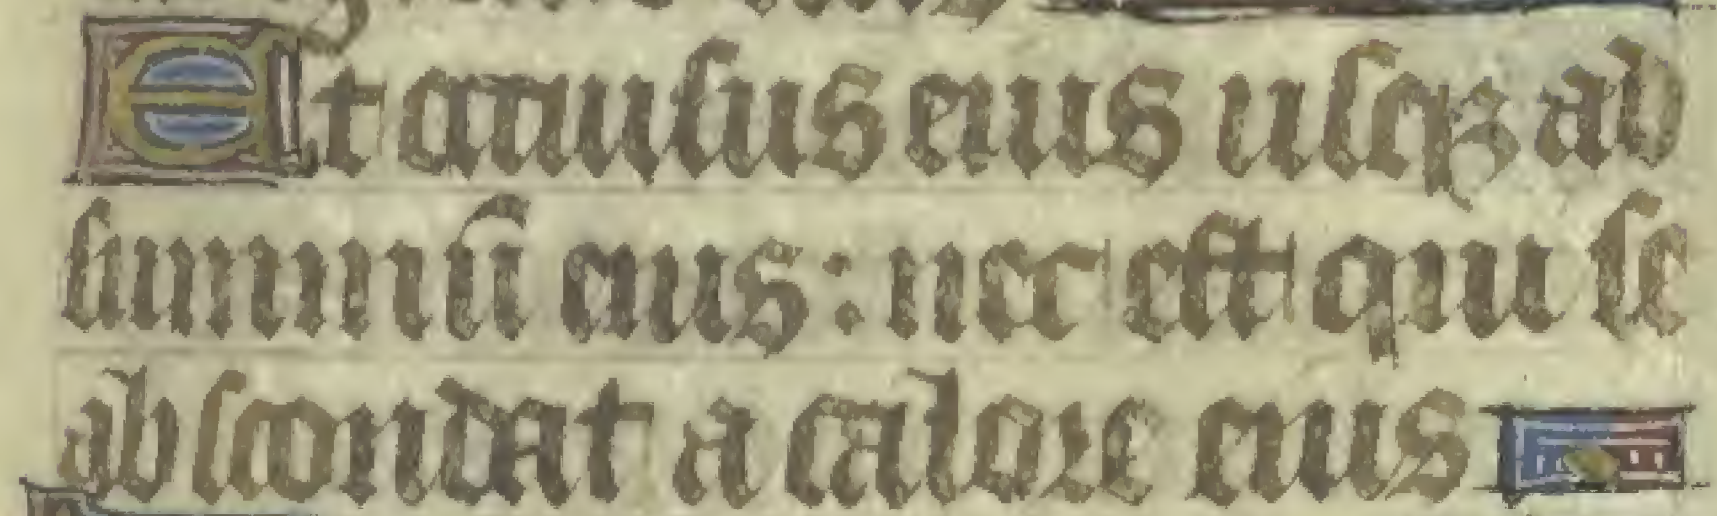 Et occurſus eius uſqꝫ ad
ſummū eius: nec eſt qui ſe
abſcondat a calore eius